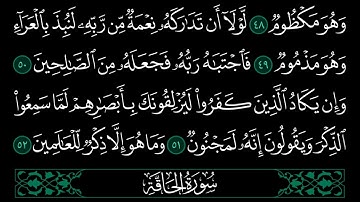 وَهُوَ مَكْظُومٌ ٤٨ لَّوْلَا أَن تَدَارَكَهُ نِعْمَةٌ مِّن رَّبِّهِ لَنُبِذَ بِالْعَرَاءِ
وَهُوَ مَذْمُومٌ ٤٩ فَاجْتَبَاهُ رَبُّهُ فَجَعَلَهُ مِنَ الصَّالِحِينَ ٥٠
وَإِن يَكَادُ الَّذِينَ كَفَرُوا لَيُزْلِقُونَكَ بِأَبْصَارِهِمْ لَمَّا سَمِعُوا
الذِّكْرَ وَيَقُولُونَ إِنَّهُ لَمَجْنُونٌ ٥١ وَمَا هُوَ إِلَّا ذِكْرٌ لِّلْعَالَمِينَ ٥٢
سُورَةُ الْحَاقَّةِ